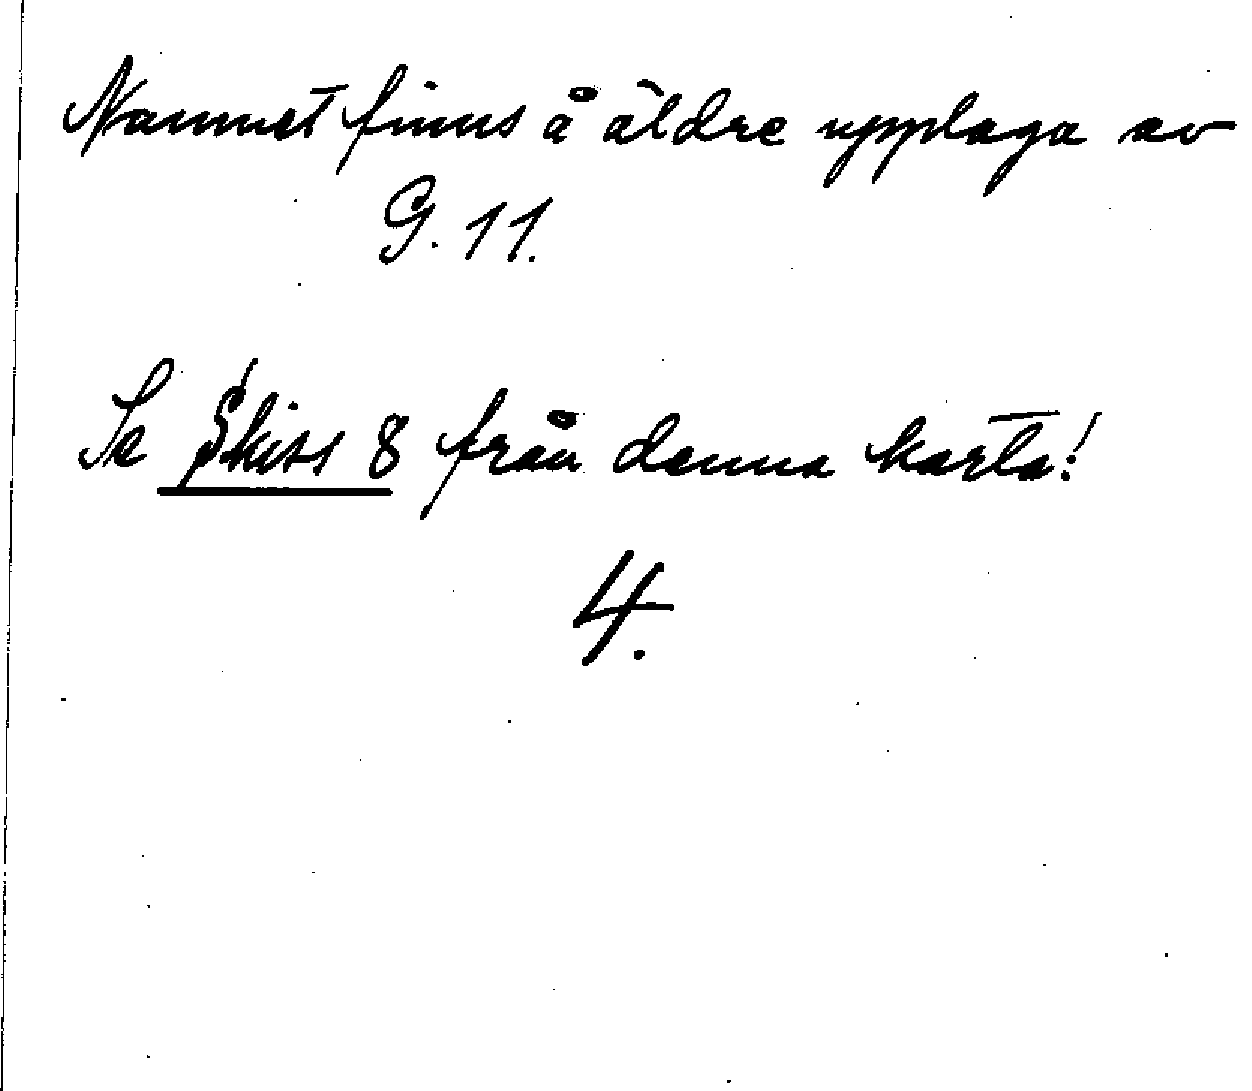 Namnet finns å äldre upplaga av
G. 11.
Se Skiss 8 från denna karta!
4.